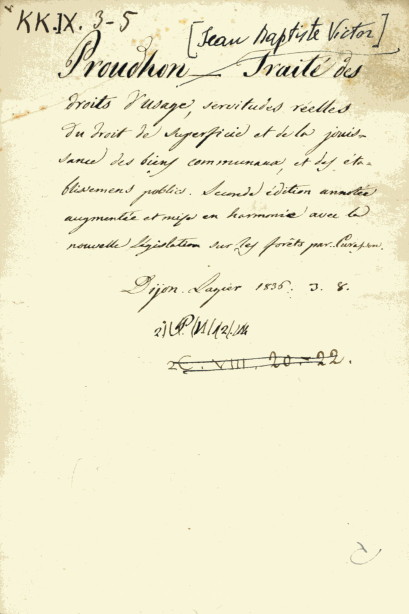 KK.IX. 3-5
[Jean Baptiste Victor]
Proudhon — Traité des
droits d'usage, servitudes réelles
du droit de superficie et de la jouis-
sance des biens communaux, et des éta-
blissemens publics. Seconde édition annotée
augmentée et mise en harmonie avec la
nouvelle législation sur les forêts par Curasson.
Dijon. Lagier 1836. 3. 8.
C. VIII. 20-22.